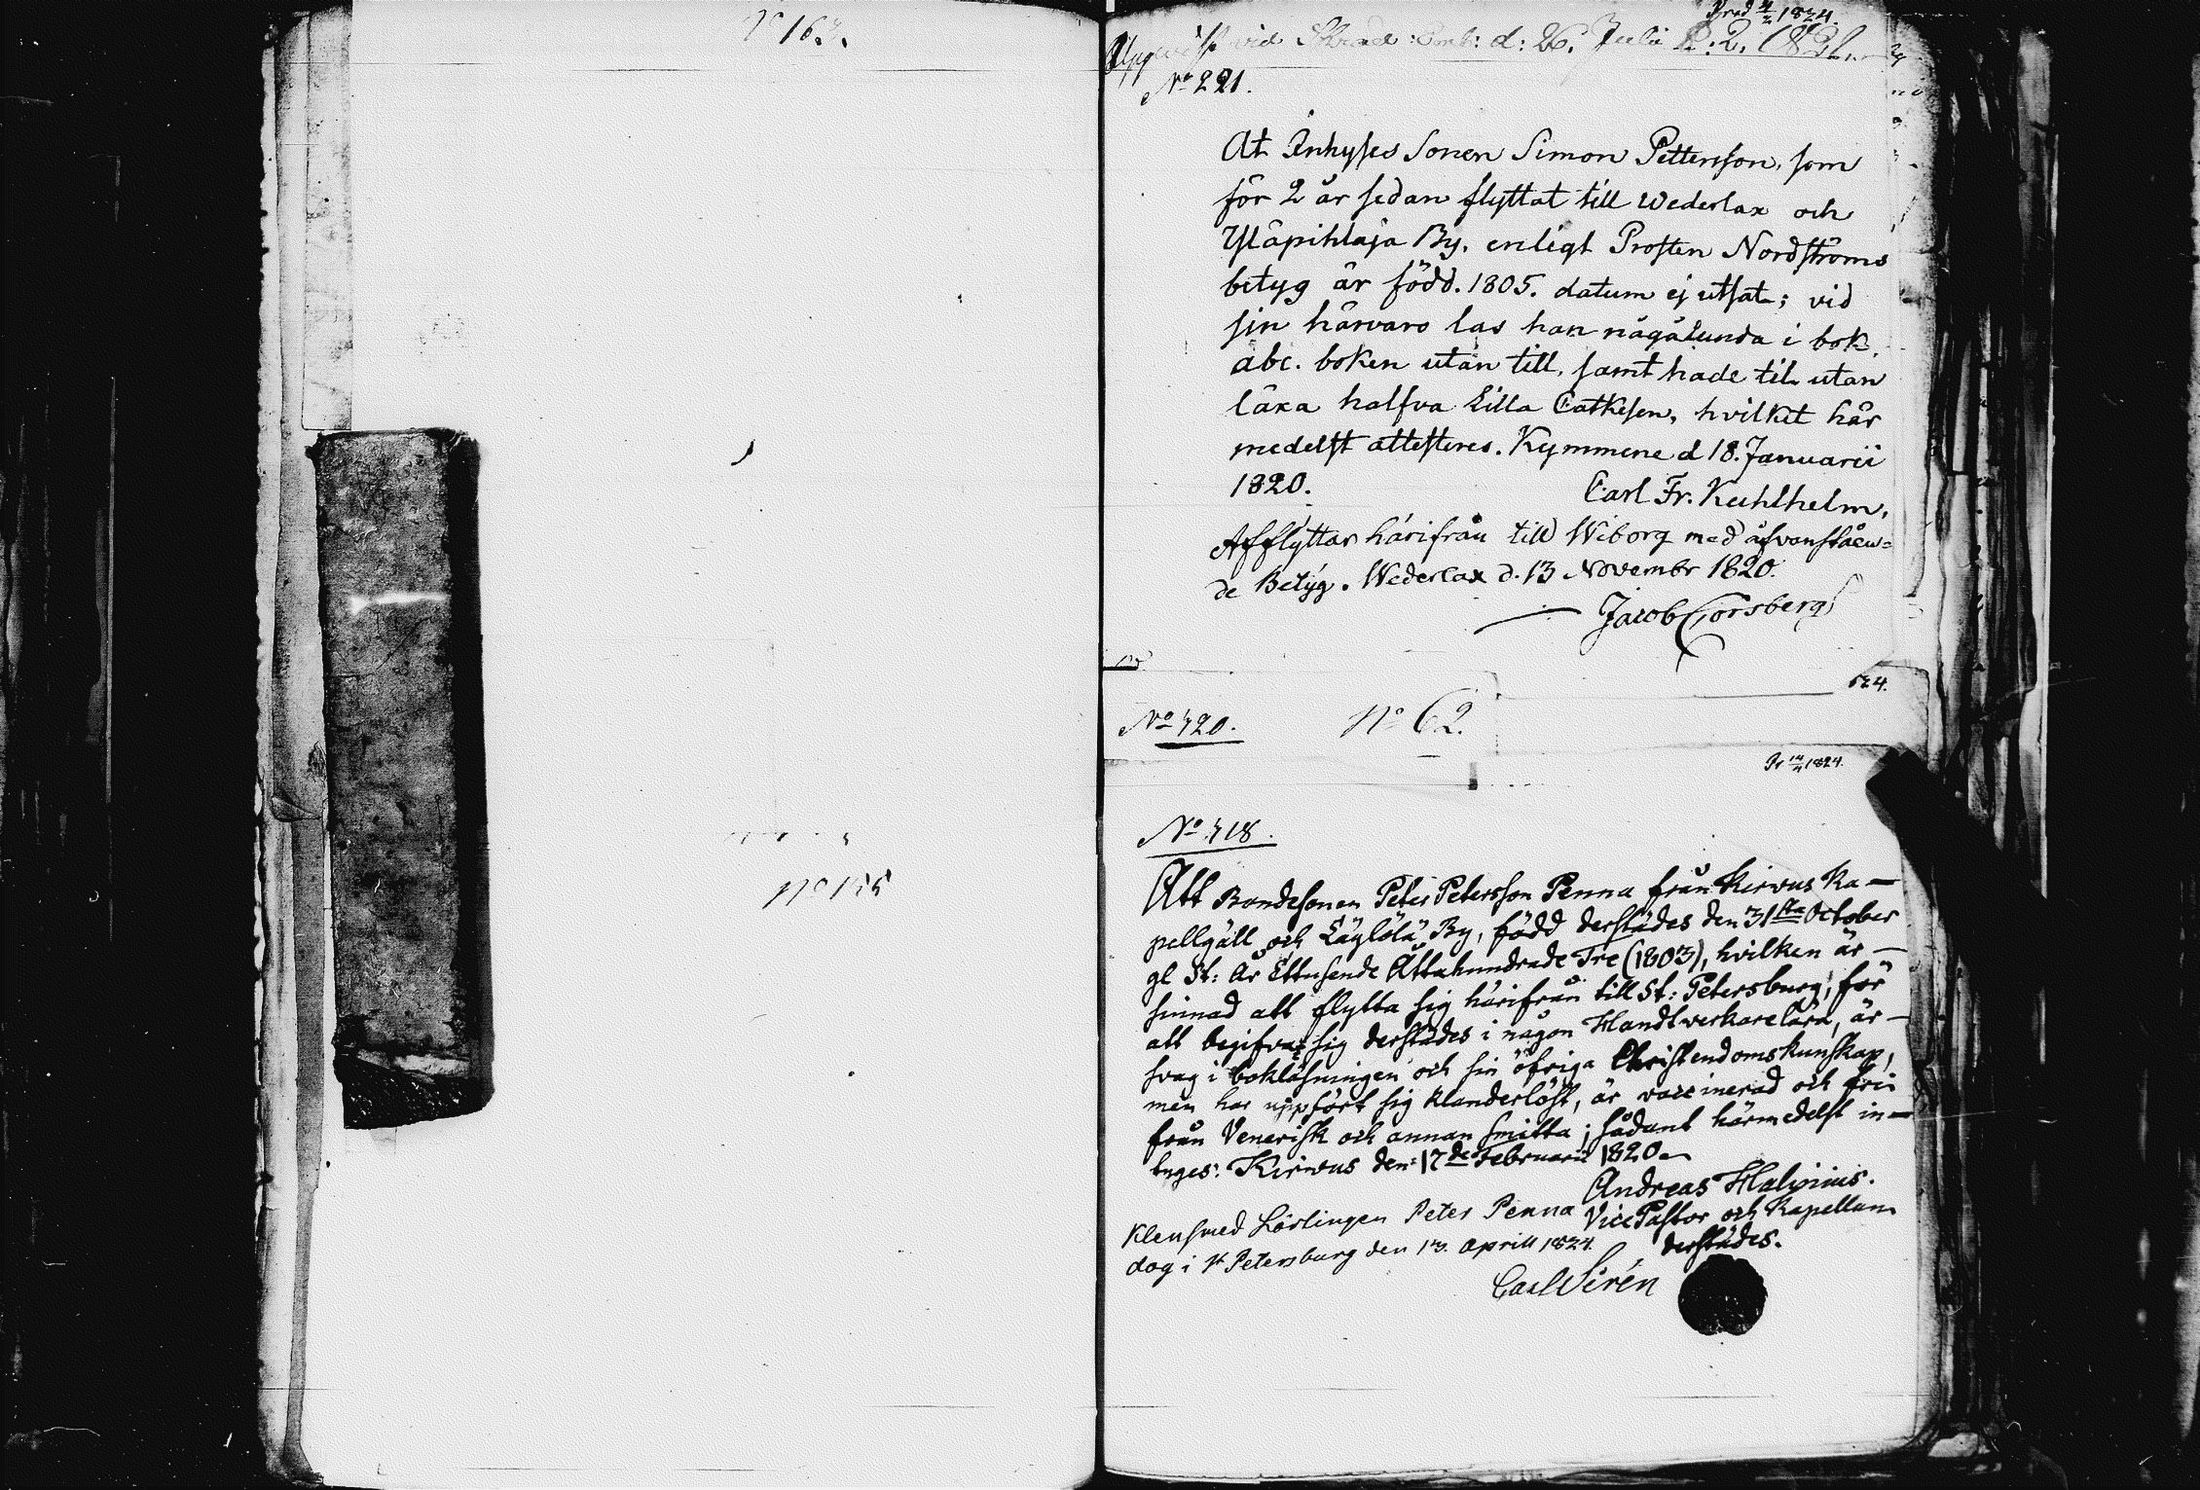 No 163.
No 155
Pred 4/2 1824.
Uppvist vid Skrad: Cont: d: 26. Julii
No 221.
At Inhyses Sonen Simon Pettersson, som
för 2 år sedan flyttat till Wederlax och
Yläpihlaja By, enligt Prosten Nordströms
betyg är född. 1805. datum ej utsat; vid
sin härvaro las han någålunda i bok,
abc. boken utan till, samt hade til utan
läxa halfva Lilla Catkesen, hvilket här
medelst attesteres. Kymmene d 18. Januarii
1820.
Carl Fr. Kuhlhelm.
Afflyttar härifrån till Wiborg med åfvanståen=
de Betÿg. Wederlax d. 13 Novembr 1820.
Jacob Forsberg
524.
No 420.
No 62.
Pr 14/4 1824.
No 418.
Att Bondesonen Peter Petersson Penna från Kirvus Ka-
pellgäll och Läylölä By, född derstädes den 31sta October
gl St: År Ettusende Åttahundrade Tre (1803), hvilken är-
sinnad att flytta sig härifrån till St: Petersburg, för
att begifva sig derstädes i någon Handtverkarelära, är-
svag i bokläsningen och sin öfriga Christendomskunskap,
men har uppfört sig klanderlöst, är vaccinerad och fri
från Venerisk och annan smitta; sådant härmedelst in-
tyges: Kirvus den 17de Februarii 1820.
Andreas Halinius.
Vice Pastor och Kapellan
derstädes.
Klensmed Lärlingen Peter Penna
dog i St Petersburg den 13. Aprill 1824.
Carl Sirén